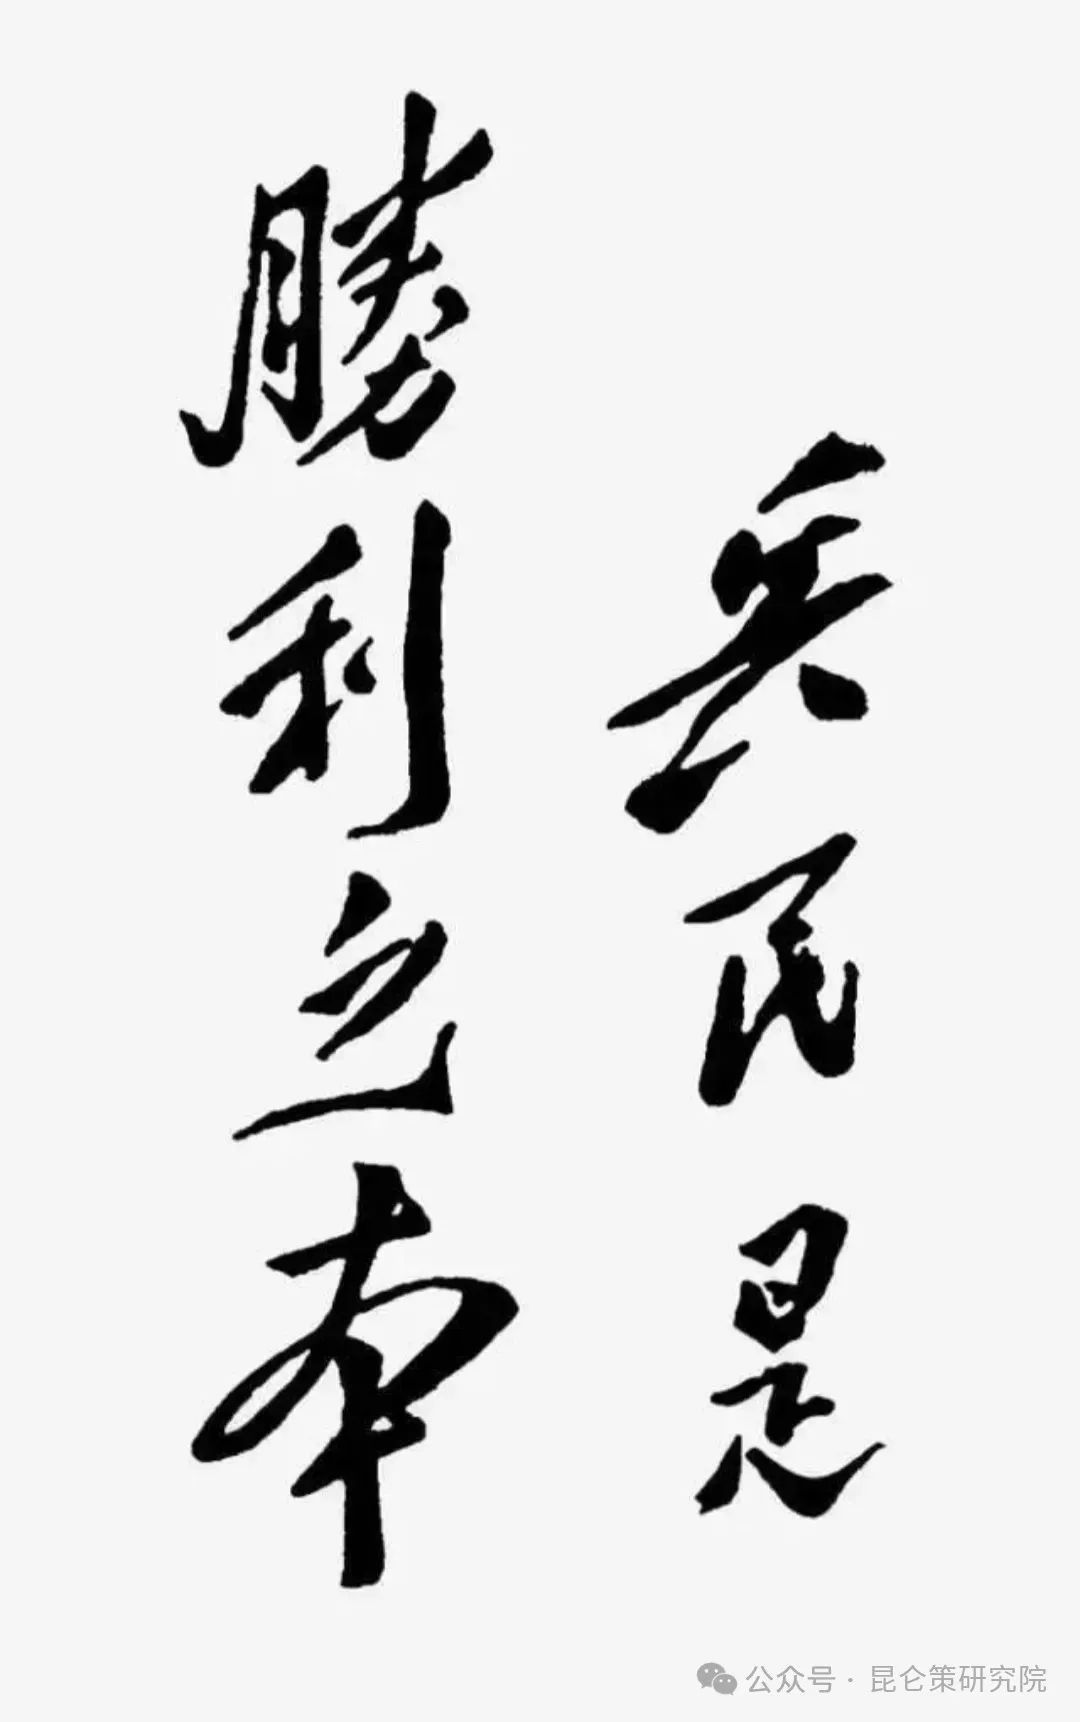 兵民是
勝利之本
公众号 · 昆仑策研究院